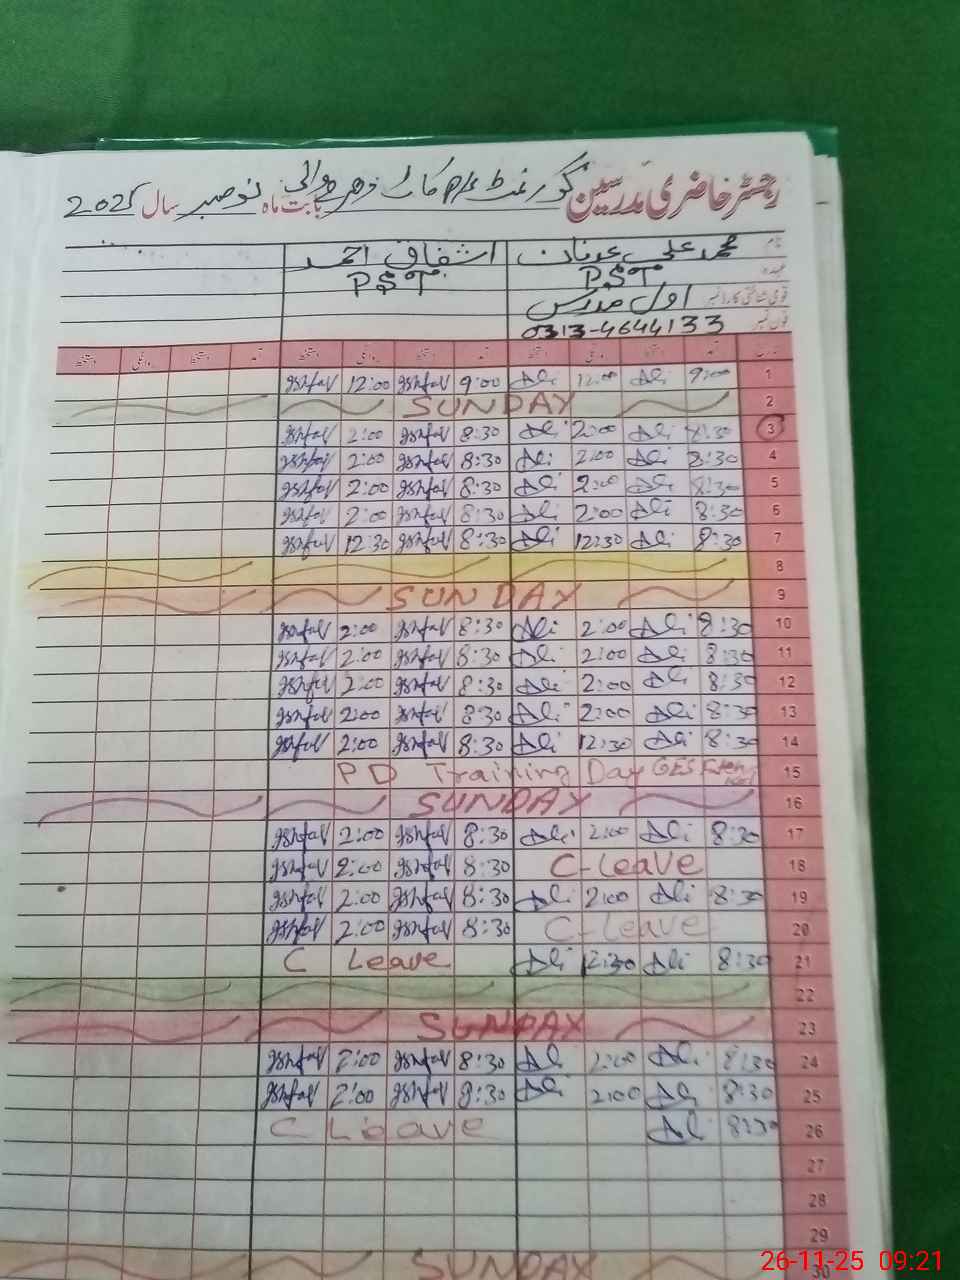 رجسٹر حاضری مدرسین گورنمنٹ P/S بابت ماہ نومبر سال 2025
نام محمد علی عدنان اشفاق احمد
عہدہ PST PST
قومی شناختی کارڈ نمبر اول مدرس
فون نمبر 0313-4644133
تاریخ آمد دستخط روانگی دستخط آمد دستخط روانگی دستخط آمد دستخط روانگی دستخط
1 9:00 Ali 12:00 Ali 9:00 12:00
2 SUNDAY
3 8:30 Ali 2:00 Ali 8:30 2:00
4 8:30 Ali 2:00 Ali 8:30 2:00
5 8:30 Ali 2:00 Ali 8:30 2:00
6 8:30 Ali 2:00 Ali 8:30 2:00
7 8:30 Ali 12:30 Ali 8:30 12:30
8
9 SUNDAY
10 8:30 Ali 2:00 Ali 8:30 2:00
11 8:30 Ali 2:00 Ali 8:30 2:00
12 8:30 Ali 2:00 Ali 8:30 2:00
13 8:30 Ali 2:00 Ali 8:30 2:00
14 8:30 Ali 12:30 Ali 8:30 2:00
15 PD Training Day GES
16 SUNDAY
17 8:30 Ali 2:00 Ali 8:30 2:00
18 C-Leave 8:30 2:00
19 8:30 Ali 2:00 Ali 8:30 2:00
20 C-Leave 8:30 2:00
21 8:30 Ali 12:30 Ali C Leave
22
23 SUNDAY
24 8:30 Ali 2:00 Ali 8:30 2:00
25 8:30 Ali 2:00 Ali 8:30 2:00
26 8:30 Ali C Leave
27
28
29
30 SUNDAY
26-11-25 09:21